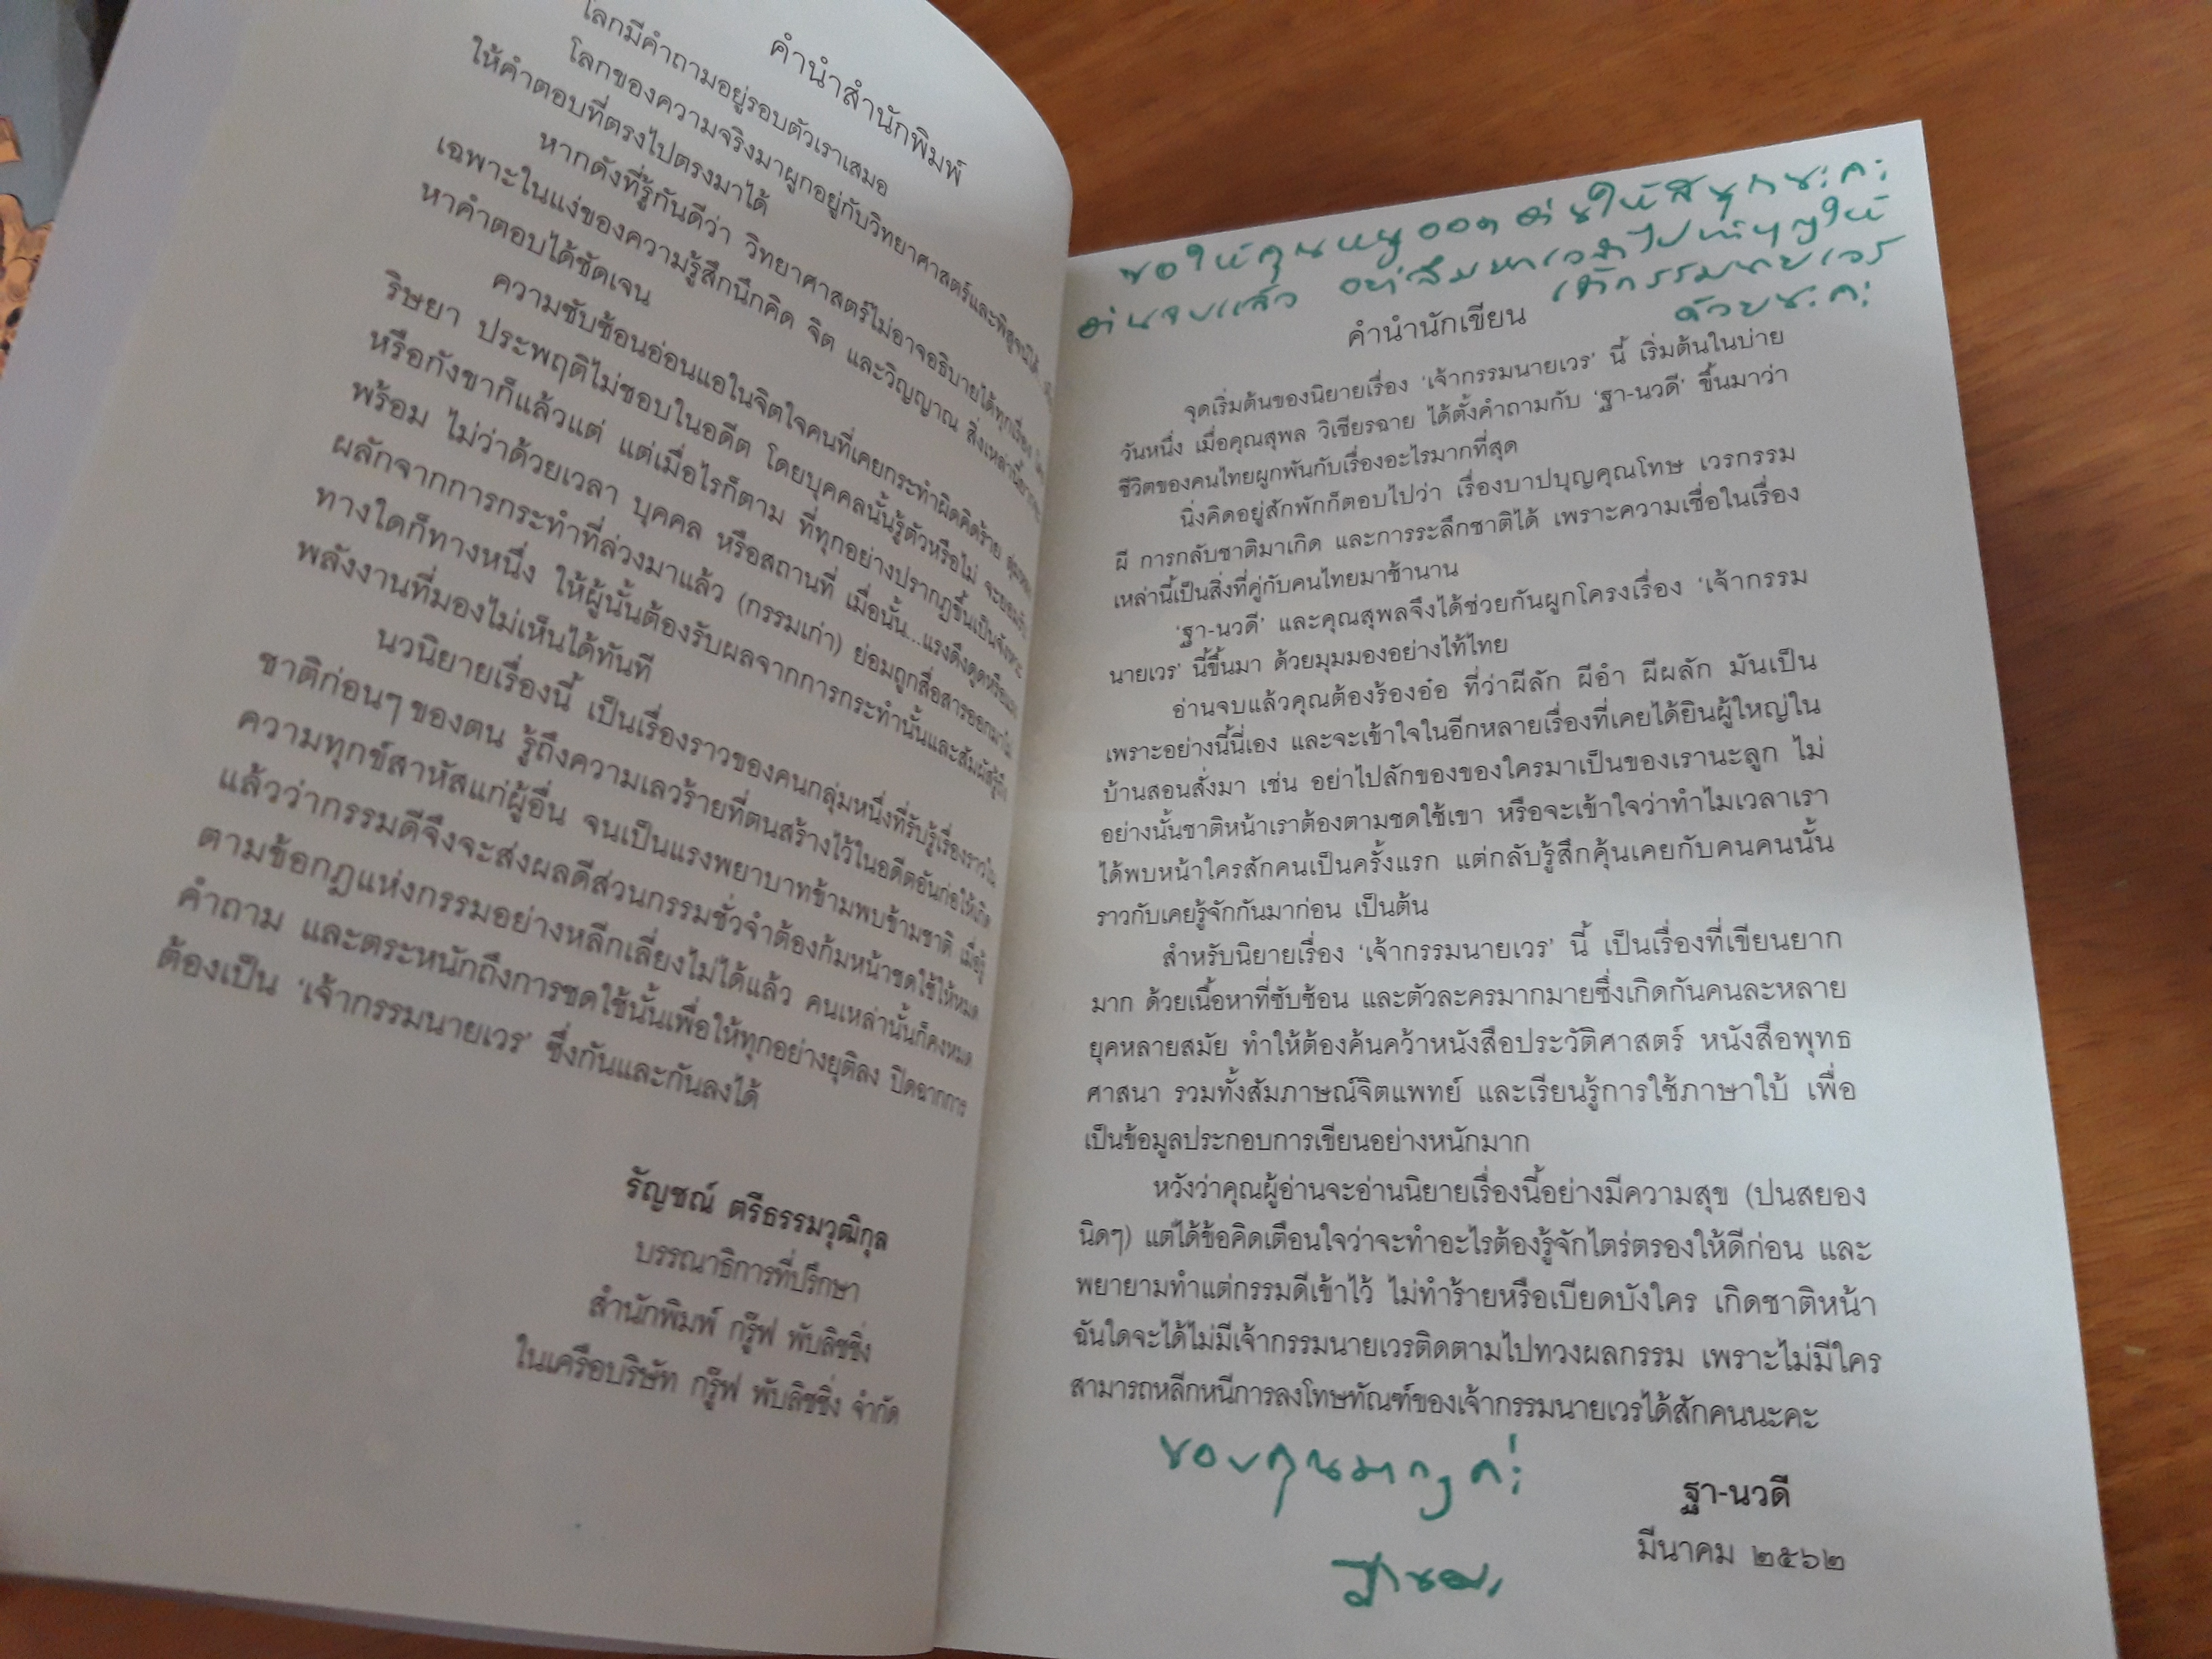 คำนำสำนักพิมพ์
โลกมีคำถามอยู่รอบตัวเราเสมอ
โลกของความจริงมาผูกอยู่กับวิทยาศาสตร์และพิสูจน์ได้
ให้คำตอบที่ตรงไปตรงมาได้
หากดังที่รู้กันดีว่า วิทยาศาสตร์ไม่อาจอธิบายได้ทุกเรื่อง
เฉพาะในแง่ของความรู้สึกนึกคิด จิต และวิญญาณ สิ่งเหล่านี้
หาคำตอบได้ชัดเจน
ความซับซ้อนอ่อนแอในจิตใจคนที่เคยกระทำผิดคิดร้าย
ริษยา ประพฤติไม่ชอบในอดีต โดยบุคคลนั้นรู้ตัวหรือไม่ จะยอมรับ
หรือกังขาก็แล้วแต่ แต่เมื่อไรก็ตาม ที่ทุกอย่างปรากฏขึ้นเป็นจังหวะ
พร้อม ไม่ว่าด้วยเวลา บุคคล หรือสถานที่ เมื่อนั้น...แรงดึงดูดหรือแรง
ผลักจากการกระทำที่ล่วงมาแล้ว (กรรมเก่า) ย่อมถูกสื่อสารออกมาไม่
ทางใดก็ทางหนึ่ง ให้ผู้นั้นต้องรับผลจากการกระทำนั้นและสัมผัสรู้ถึง
พลังงานที่มองไม่เห็นได้ทันที
นวนิยายเรื่องนี้ เป็นเรื่องราวของคนกลุ่มหนึ่งที่รับรู้เรื่องราวใน
ชาติก่อนๆ ของตน รู้ถึงความเลวร้ายที่ตนสร้างไว้ในอดีตอันก่อให้เกิด
ความทุกข์สาหัสแก่ผู้อื่น จนเป็นแรงพยาบาทข้ามพบข้ามชาติ เมื่อรู้
แล้วว่ากรรมดีจึงจะส่งผลดีส่วนกรรมชั่วจำต้องก้มหน้าชดใช้ให้หมด
ตามข้อกฎแห่งกรรมอย่างหลีกเลี่ยงไม่ได้แล้ว คนเหล่านั้นก็คงหมด
คำถาม และตระหนักถึงการชดใช้นั้นเพื่อให้ทุกอย่างยุติลง ปิดฉากการ
ต้องเป็น 'เจ้ากรรมนายเวร' ซึ่งกันและกันลงได้
รัญชณ์ ตรีธรรมวุฒิกุล
บรรณาธิการที่ปรึกษา
สำนักพิมพ์ กรู๊ฟ พับลิชชิ่ง
ในเครือบริษัท กรู๊ฟ พับลิชชิ่ง จำกัด
ขอให้คุณหมู อ่านให้สนุกนะคะ
อ่านจบแล้ว อย่าลืม ไปทำบุญให้
เจ้ากรรมนายเวร
ด้วยนะคะ
คำนำนักเขียน
จุดเริ่มต้นของนิยายเรื่อง 'เจ้ากรรมนายเวร' นี้ เริ่มต้นในบ่าย
วันหนึ่ง เมื่อคุณสุพล วิเชียรฉาย ได้ตั้งคำถามกับ 'ฐา-นวดี' ขึ้นมาว่า
ชีวิตของคนไทยผูกพันกับเรื่องอะไรมากที่สุด
นิ่งคิดอยู่สักพักก็ตอบไปว่า เรื่องบาปบุญคุณโทษ เวรกรรม
ผี การกลับชาติมาเกิด และการระลึกชาติได้ เพราะความเชื่อในเรื่อง
เหล่านี้เป็นสิ่งที่คู่กับคนไทยมาช้านาน
'ฐา-นวดี' และคุณสุพลจึงได้ช่วยกันผูกโครงเรื่อง 'เจ้ากรรม
นายเวร' นี้ขึ้นมา ด้วยมุมมองอย่างไท้ไทย
อ่านจบแล้วคุณต้องร้องอ๋อ ที่ว่าผีลัก ผีอำ ผีผลัก มันเป็น
เพราะอย่างนี้นี่เอง และจะเข้าใจในอีกหลายเรื่องที่เคยได้ยินผู้ใหญ่ใน
บ้านสอนสั่งมา เช่น อย่าไปลักของของใครมาเป็นของเรานะลูก ไม่
อย่างนั้นชาติหน้าเราต้องตามชดใช้เขา หรือจะเข้าใจว่าทำไมเวลาเรา
ได้พบหน้าใครสักคนเป็นครั้งแรก แต่กลับรู้สึกคุ้นเคยกับคนคนนั้น
ราวกับเคยรู้จักกันมาก่อน เป็นต้น
สำหรับนิยายเรื่อง 'เจ้ากรรมนายเวร' นี้ เป็นเรื่องที่เขียนยาก
มาก ด้วยเนื้อหาที่ซับซ้อน และตัวละครมากมายซึ่งเกิดกันคนละหลาย
ยุคหลายสมัย ทำให้ต้องค้นคว้าหนังสือประวัติศาสตร์ หนังสือพุทธ
ศาสนา รวมทั้งสัมภาษณ์จิตแพทย์ และเรียนรู้การใช้ภาษาใบ้ เพื่อ
เป็นข้อมูลประกอบการเขียนอย่างหนักมาก
หวังว่าคุณผู้อ่านจะอ่านนิยายเรื่องนี้อย่างมีความสุข (ปนสยอง
นิดๆ) แต่ได้ข้อคิดเตือนใจว่าจะทำอะไรต้องรู้จักไตร่ตรองให้ดีก่อน และ
พยายามทำแต่กรรมดีเข้าไว้ ไม่ทำร้ายหรือเบียดบังใคร เกิดชาติหน้า
ฉันใดจะได้ไม่มีเจ้ากรรมนายเวรติดตามไปทวงผลกรรม เพราะไม่มีใคร
สามารถหลีกหนีการลงโทษทัณฑ์ของเจ้ากรรมนายเวรได้สักคนนะคะ
ขอบคุณมากๆ ค่ะ
ฐา-นวดี
มีนาคม ๒๕๖๒